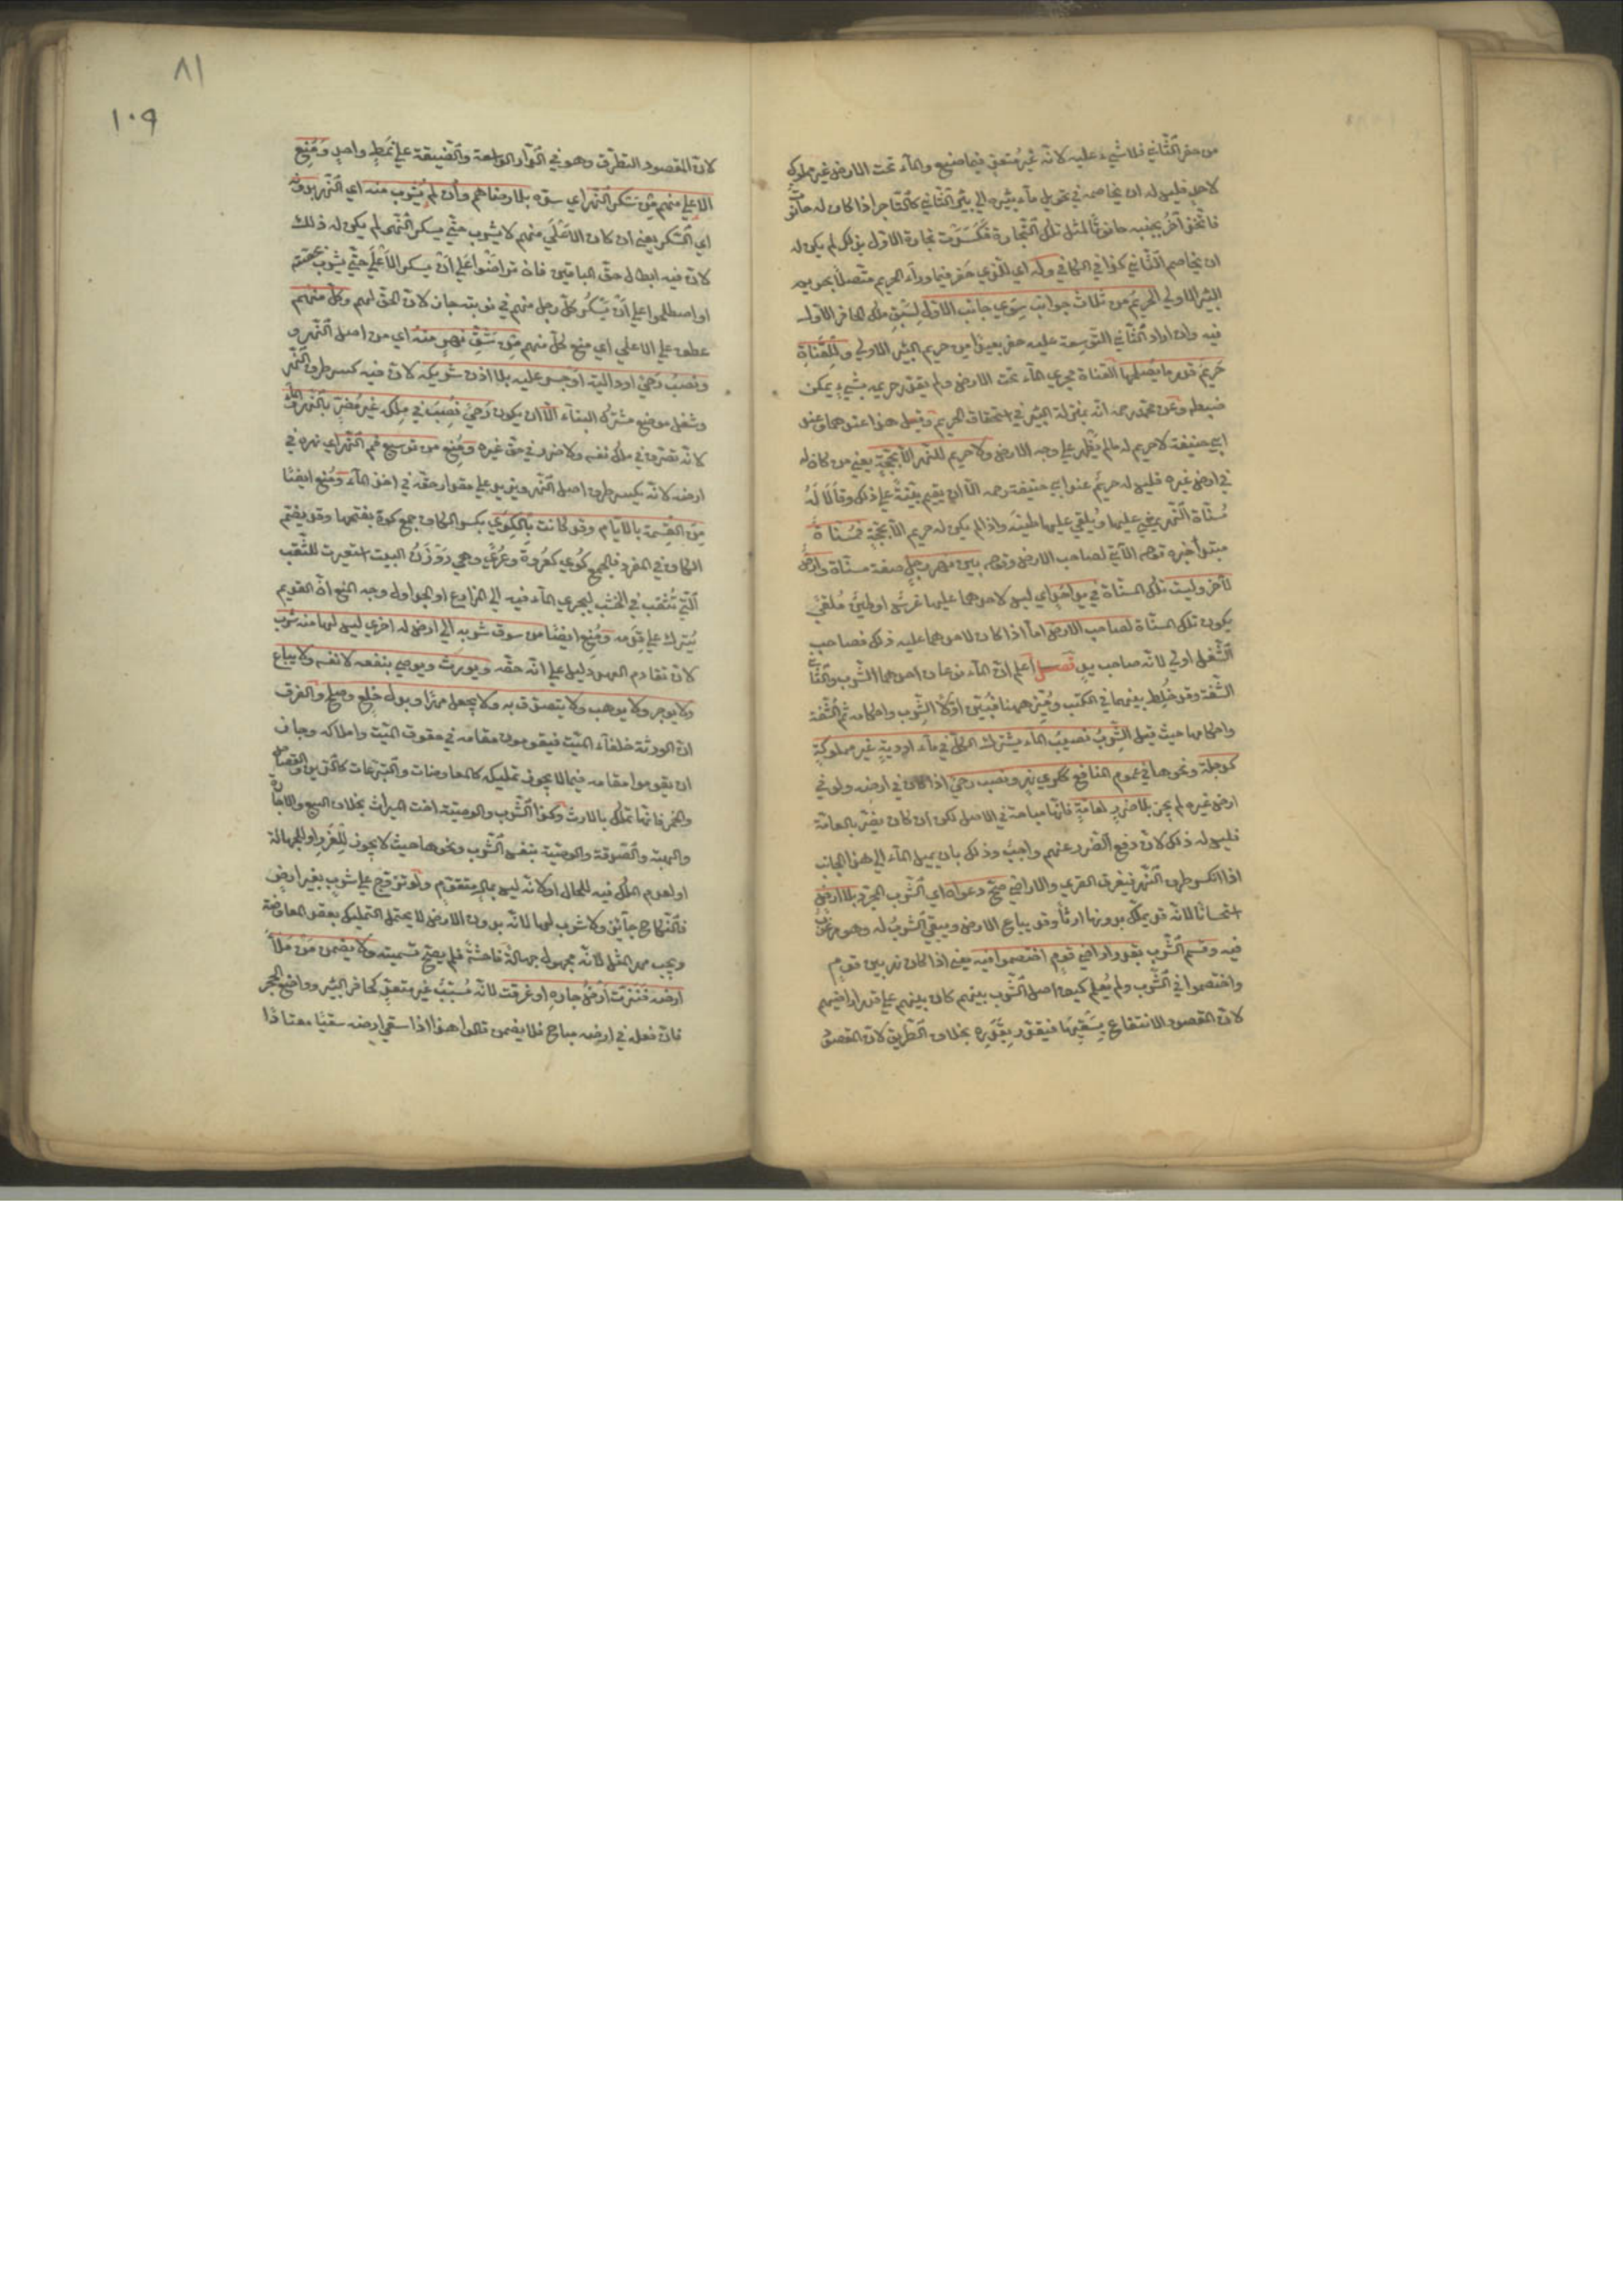 من حفر الثاني فلا شيء عليه لانه غير متعد فيما صنع والماء تحت الارض غير مملوك
لاحد فليس له ان يخاصمه في تحويل ماء بئره الى بئر الثاني كالتاجر اذا كان له حانوت
فاتخذ آخر بجنبه حانوتا لمثل تلك التجارة فكسدت تجارة الاول بذلك لم يكن له
ان يخاصم الثاني كذا في الكافي وله اي للذي حفر فيما وراء الحريم متصلا بحريم
البئر الاولي الحريم من ثلاث جوانب سوي جانب الاول لسبق ملك الحافر الاول
فيه وان اراد الثاني التوسعة عليه حفر بعيدا من حريم البئر الاولي وللقناة
حريم قدر ما يصلحها القناة مجري الماء تحت الارض ولم يقدر حريمه بشيء يمكن
ضبطه وعن محمد رحمه انه بمنزلة البئر في استحقاق الحريم وقيل هذا عندهما وعند
ابي حنيفة لا حريم له ما لم يظهر علي وجه الارض ولا حريم للنهر الا بحجة يعني من كان له
في ارض غيره فليس له حريم عند ابي حنيفة رحمه الا ان يقيم بينة علي ذلك وقالا له
مسناة النهر يمشي عليها ويلقي عليها طينه واذا لم يكن له حريم الا بحجة فمسناة
مبتدأ خبره قوله الآتي لصاحب الارض وقوله بين نهر رجل صفة مسناة وارض
لآخر وليست تلك المسناة في يد احد اي ليس لاحدهما عليها غرس او طين ملقي
يكون تلك المسناة لصاحب الارض اما اذا كان لاحدهما عليه ذلك فصاحب
الشغل اولي لانه صاحب يد فصل اعلم ان الماء نوعان احدهما الشرب والثاني
الشفة وقد خلط بينهما في الكتب وميز ههنا فبين اولا الشرب واحكامه ثم الشفة
واحكامها حيث قيل الشرب نصيب الماء يشترك الكل في ماء اودية غير مملوكة
كدجلة ونحوها في عموم المنافع ككري نهر ونصب رحي اذا كان في ارضه ولو في
ارض غيره لم يجز بلا ضرر لعامة فانها مباحة في الاصل لكن ان كان يضر بالعامة
فليس له ذلك لان دفع الضرر عنهم واجب وذلك بان يميل الماء الي هذا الجانب
اذا انكسر طرف النهر فيغرق القري والاراضي صح دعواه اي الشرب المجرد بلا ارض
استحسانا لانه قد يملك بدونها ارثا وقد يباع الارض ويبقي الشرب له وهو مرغوب
فيه وقسم الشرب بقدر اراضي قوم اختصموا فيه يعني اذا كان نهر بين قوم
واختصموا في الشرب ولم يعلم كيف اصل الشرب بينهم كان بينهم علي قدر اراضيهم
لان المقصود الانتفاع بسقيها فيقدر بقدره بخلاف الطريق لان المقصود
٨١
١٠٩
لان المقصود التطرق وهو في الدار الواسعة والضيقة علي نمط واحد ومنع
الاعلي منهم من سكر النهر اي سده بلا رضاهم وان لم يشرب منه اي النهر بدونه
اي السكر يعني ان كان الاعلي منهم لا يشرب حتي يسكر النهر لم يكن له ذلك
لان فيه ابطال حق الباقين فان تراضوا علي ان يسكر الاعلي حتي يشرب بحصته
او اصطلحوا علي ان يسكر كل رجل منهم في نوبته جاز لان الحق لهم وكل منهم
عطف علي الاعلي اي منع كل منهم من شق نهر منه اي من اصل النهر و
ونصب رحي او دالية او جسر عليه بلا اذن شريكه لان فيه كسر طرف النهر
وشغل موضع مشترك البناء الا ان يكون رحي نصب في ملك غير مضر بالنهر والماء
لانه تصرف في ملك نفسه ولا ضرر في حق غيره ومنع من توسيع فم النهر اي نهره في
ارضه لانه يكسر طرف اصل النهر ويزيد علي مقدار حقه في اخذ الماء ومنع ايضا
من القسمة بالايام وقد كانت بالكوي بكسر الكاف جمع كوة بفتحها وقد يضم
الكاف في المفرد فالجمع كوي كعروة وعري وهي روزن البيت استعيرت للثقب
التي تثقب في الخشب ليجري الماء فيه الي المزارع او الجداول وجه المنع ان القديم
يترك علي قدمه ومنع ايضا من سوق شربه الي ارض له اخري ليس لها منه شرب
لان تقادم العهد دليل علي انه حقه ويورث ويوصي بنفعه لا نفسه ولا يباع
ولا يوجر ولا يوهب ولا يتصدق به ولا يجعل مهرا وبدل خلع وصلح والفرق
ان الورثة خلفاء الميت فيقومون مقامه في حقوق الميت واملاكه وجاز
ان يقوموا مقامه فيما لا يجوز تمليكه كالمعاوضات والتبرعات كالدين والقصاص
والخمر فانها تملك بالارث وكذا الشرب والوصية اخت الميراث بخلاف البيع والاجارة
والهبة والصدقة والوصية بنفس الشرب ونحوها حيث لا يجوز للغرر او للجهالة
او لعدم الملك فيه للحال او لانه ليس بمال متقوم ولو تزوج علي شرب بغير ارض
فالنكاح جائز ولا شرب لها لانه بدون الارض لا يحتمل التمليك بعقد المعاوضة
ويجب مهر المثل لانه مجهول جهالة فاحشة فلم يصح تسميته ولا يضمن من ملأ
ارضه فنزت ارض جاره او غرقت لانه مسبب غير متعد كحافر البئر وواضع الحجر
فان فعله في ارضه مباح فلا يضمن قالوا هذا اذا سقي ارضه سقيا معتادا